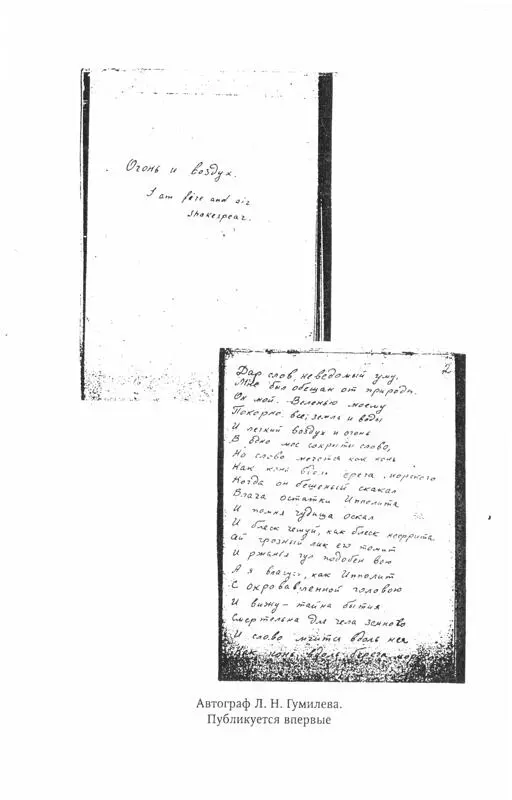 Огонь и воздух.
I am fire and air
Shakespear.
2
Дар слов, неведомый уму,
Мне был обещан от природы.
Он мой. Веленью моему
Покорно все; земля и воды
И легкий воздух и огонь
В одно мое сокрыты слово,
Но слово мечется как конь
Как конь вдоль брега морского
Когда он бешеный скакал
Влача остатки Ипполита
И помня чудища оскал
И блеск чешуи, как блеск нефрита
Сей грозный лик его томит
И ржанья гул подобен вою
А я влачусь, как Ипполит
С окровавленной головою
И вижу – тайна бытия
Смертельна для чела земного
И слово мчится вдоль нея
Как конь вдоль берега
Автограф Л. Н. Гумилева.
Публикуется впервые